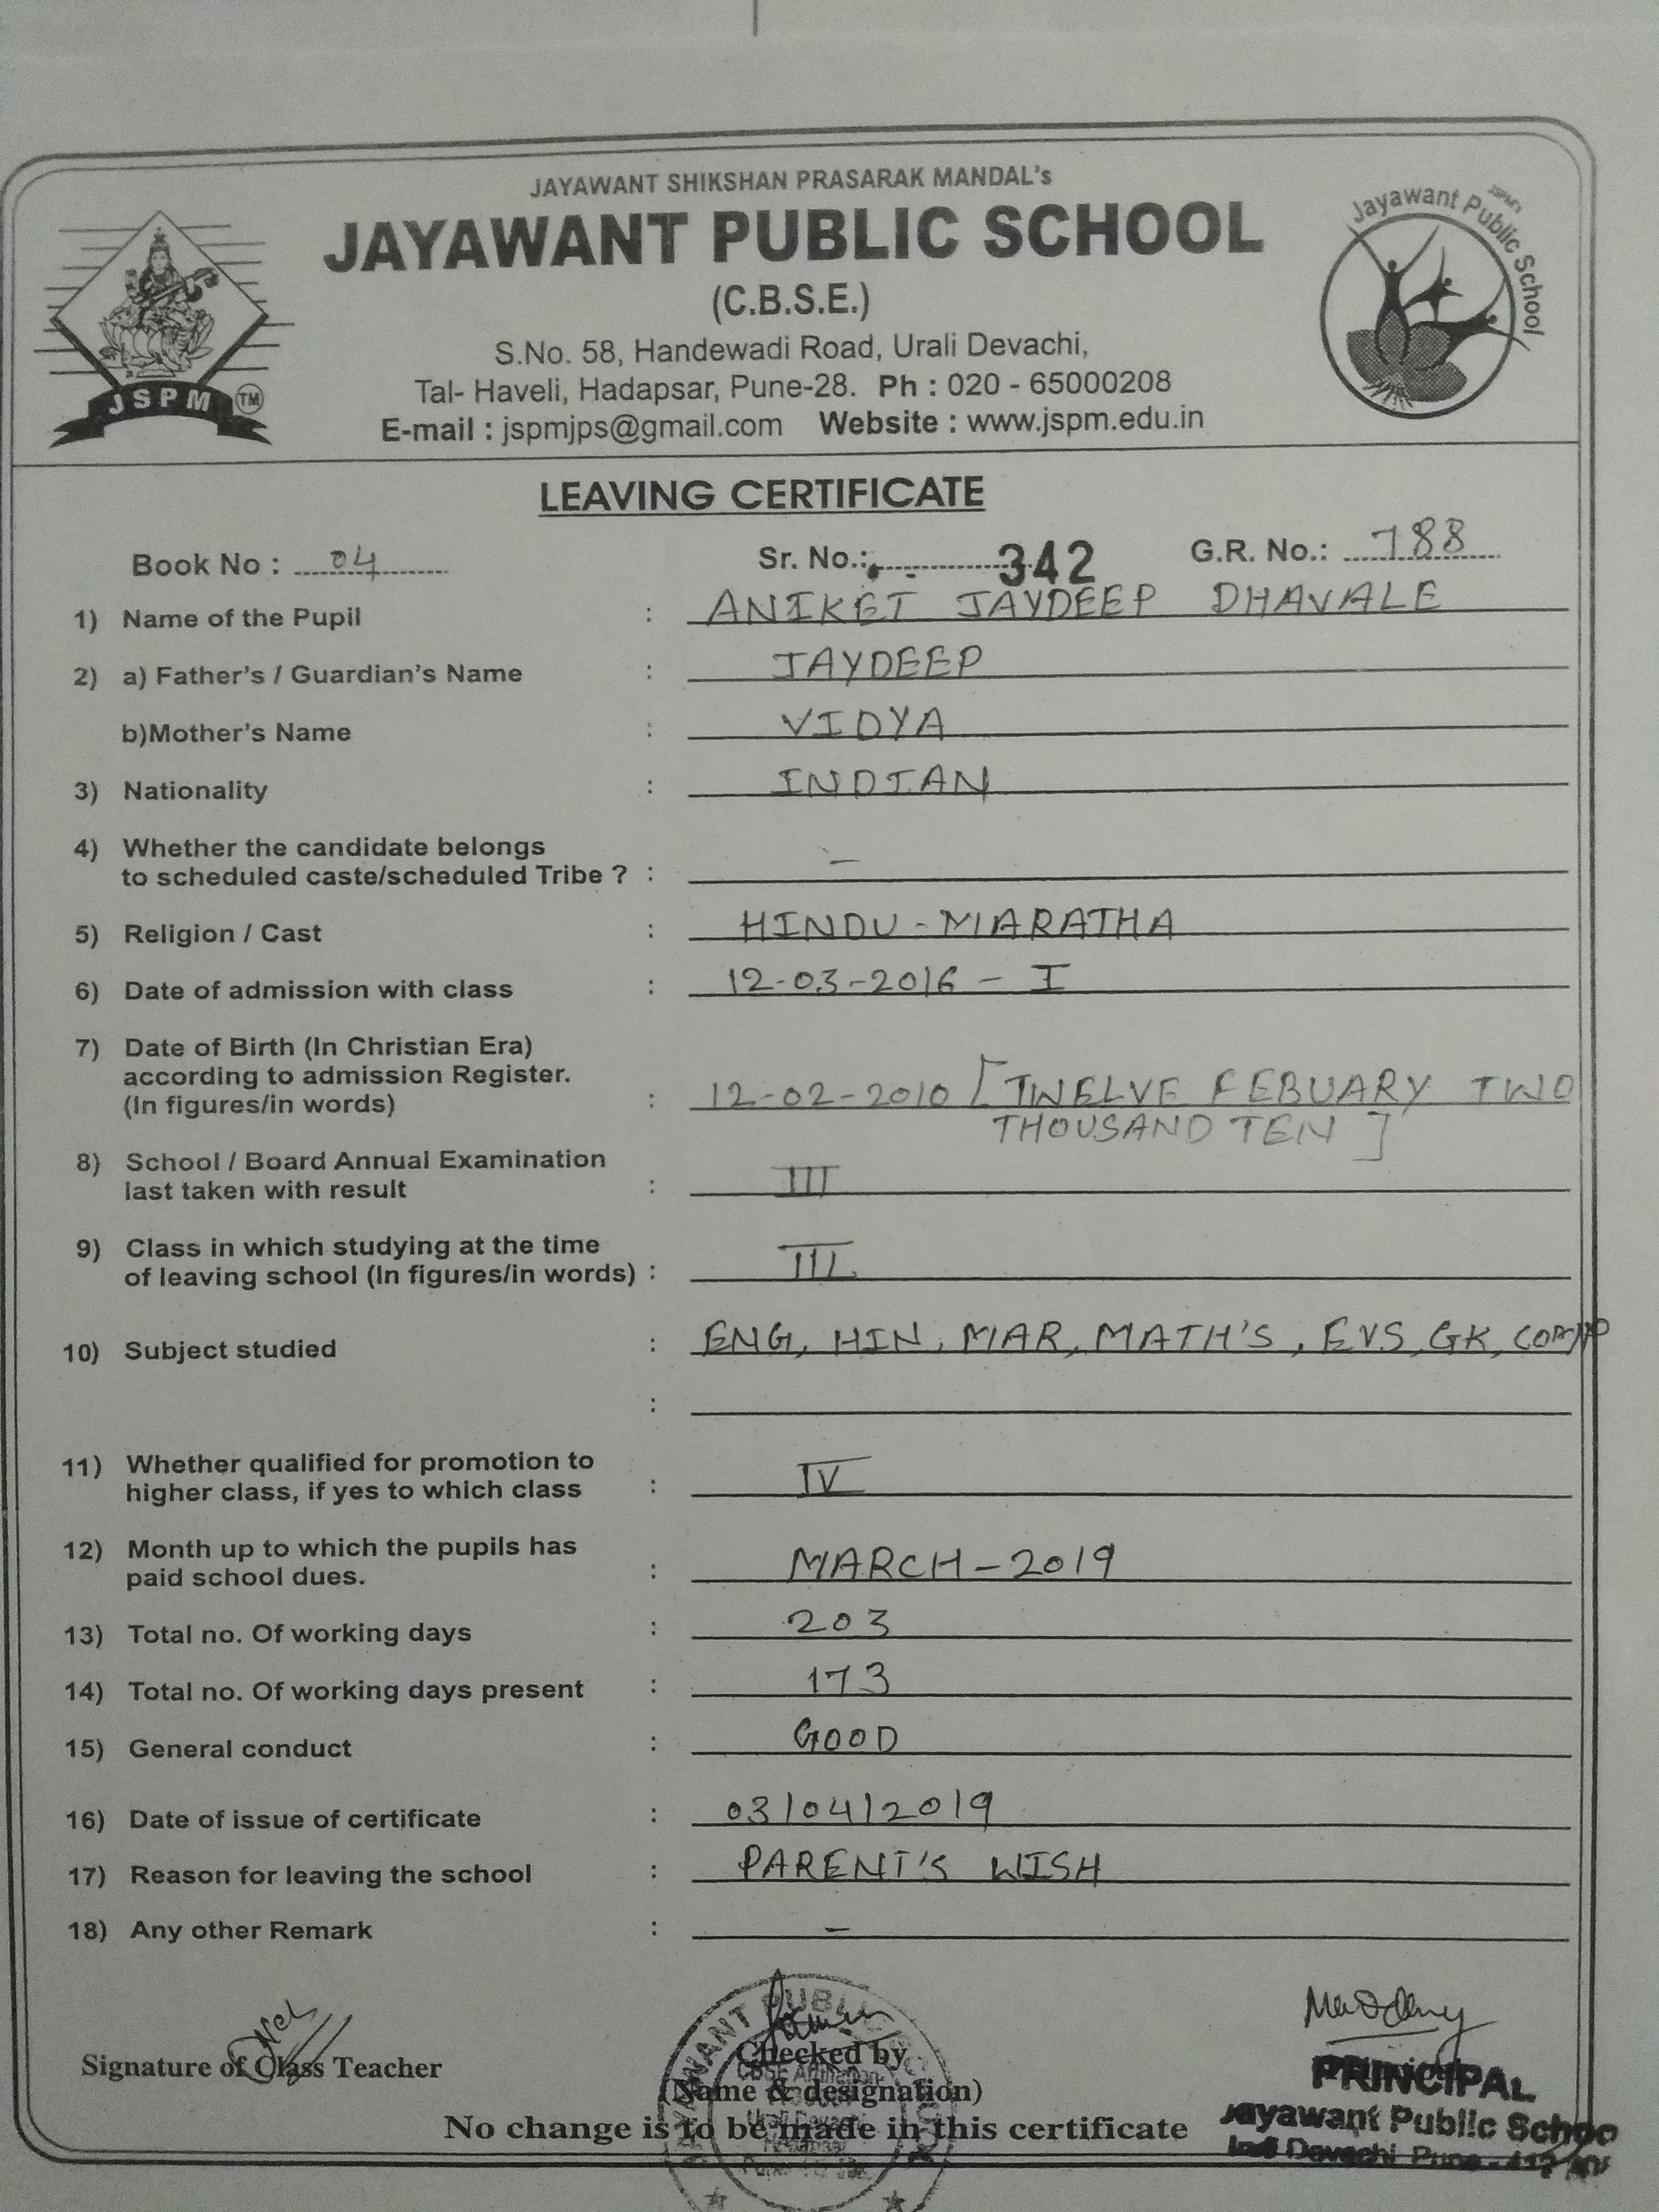 JAYAWANT SHIKSHAN PRASARAK MANDAL's
JAYAWANT PUBLIC SCHOOL
(C.B.S.E.)
S.No. 58, Handewadi Road, Urali Devachi,
Tal- Haveli, Hadapsar, Pune-28. Ph : 020 - 65000208
E-mail : jspmjps@gmail.com Website : www.jspm.edu.in
JSPM TM
JSPM's
Jayawant Public School
LEAVING CERTIFICATE
Book No : 04 Sr. No.: 342 G.R. No.: 788
1) Name of the Pupil : ANIKET JAYDEEP DHAVALE
2) a) Father's / Guardian's Name : JAYDEEP
b)Mother's Name : VIDYA
3) Nationality : INDIAN
4) Whether the candidate belongs
to scheduled caste/scheduled Tribe ? : –
5) Religion / Cast : HINDU - MARATHA
6) Date of admission with class : 12-03-2016 – I
7) Date of Birth (In Christian Era)
according to admission Register.
(In figures/in words) : 12-02-2010 [TWELVE FEBUARY TWO
THOUSAND TEN ]
8) School / Board Annual Examination
last taken with result : III
9) Class in which studying at the time
of leaving school (In figures/in words) : III
10) Subject studied : ENG, HIN, MAR, MATH'S, EVS, GK, COMP
:
11) Whether qualified for promotion to
higher class, if yes to which class : IV
12) Month up to which the pupils has
paid school dues. : MARCH – 2019
13) Total no. Of working days : 203
14) Total no. Of working days present : 173
15) General conduct : GOOD
16) Date of issue of certificate : 03/04/2019
17) Reason for leaving the school : PARENT'S WISH
18) Any other Remark : –
Signature of Class Teacher
Checked by
(Name & designation)
PRINCIPAL
Jayawant Public School
Devachi Pune - 412
No change is to be made in this certificate